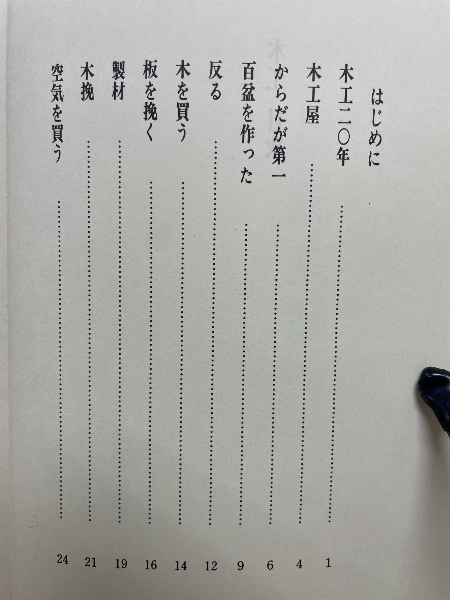 はじめに
木工二〇年……1
木工屋……4
からだが第一……6
百盆を作った……9
反る……12
木を買う……14
板を挽く……16
製材……19
木挽……21
空気を買う……24